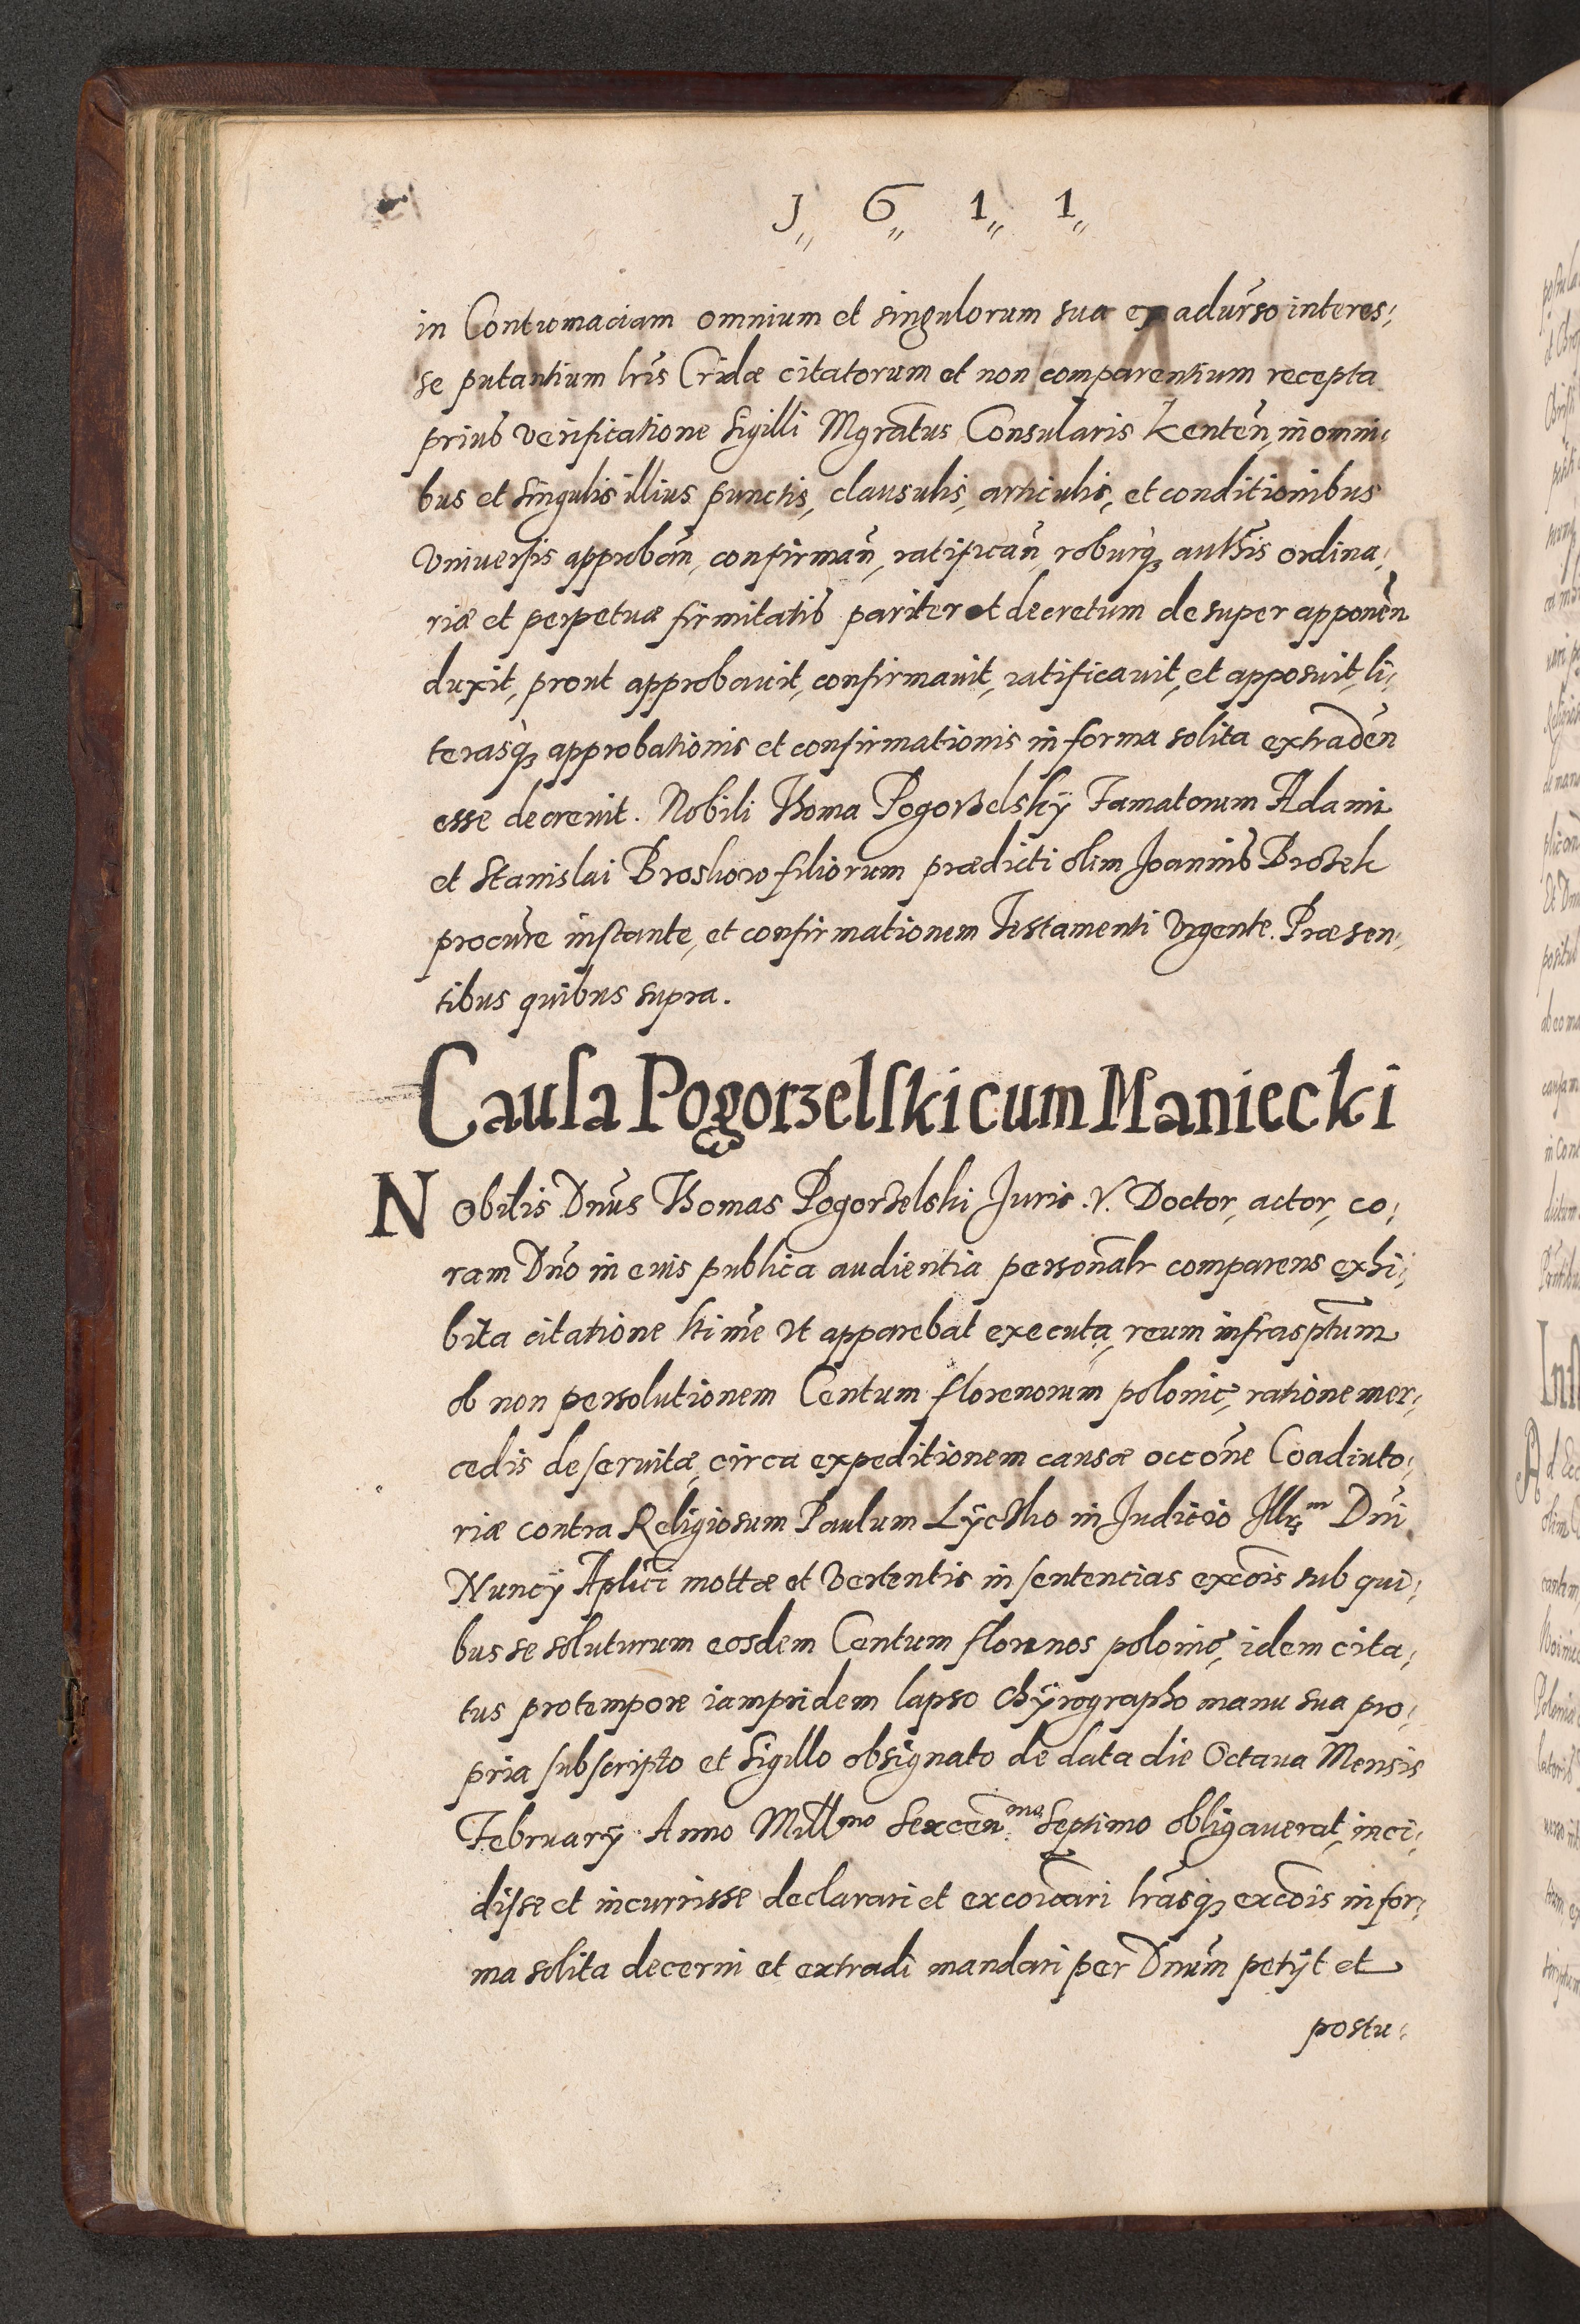 J„ 6„ 1„ 1„
in Contumaciam omnium et singulorum sua ex adurso interes:
se putantium lris Cridæ citatorum et non comparentium recepta
prius verificatione Sigilli Mgratus Consularis Kenten, in omni:
bus et singulis illius punctis, clausulis, articulis, et conditionibus
Vniuersis approban, confirman, ratifican, roburq3 authis ordina:
riæ et perpetuæ firmitatis pariter et decretum desuper apponen
duxit, prout approbauit, confirmauit, ratificauit, et apposuit, li:
terasq3 approbationis et confirmationis in forma solita extraden
esse decreuit. Nobili Thoma Pogorzelskÿ Famatorum Adami
et Stanislai Broskow filiorum prædicti olim Joannis Brozek
procure instante, et confirmationem Testamenti Vrgente. Præsen:
tibus quibus supra.
Causa Pogorzelski cum Maniecki
Nobilis Dnus Thomas Pogorzelski Juris .V. Doctor, actor, co:
ram Dno in euis publica audientia personalr comparens exhi:
bita citatione ltime vt apparebat executa, reum infrasptum
ob non persolutionem Centum florenorum polonic, ratione mer:
cedis deseruitæ, circa expeditionem causæ occone Coadiuto:
riæ contra Religiosum Paulum Lÿczko in Judicio Illmi Dni
Nuncÿ Aplici mottæ et vertentis in sentencias excois sub qui:
bus se soluturum eosdem Centum florenos polonic, idem cita:
tus pro tempore iampridem lapso chÿrographo manu sua pro:
pria subscripto et Sigillo obsignato de data die Octaua Mensis
Februarÿ Anno Millmo Sexcenmo Septimo obligauerat, inci:
disse et incurrisse declarari et excoicari lrasq3 excois in for:
ma solita decerni et extradi mandari per Dnum petÿt et
postu: